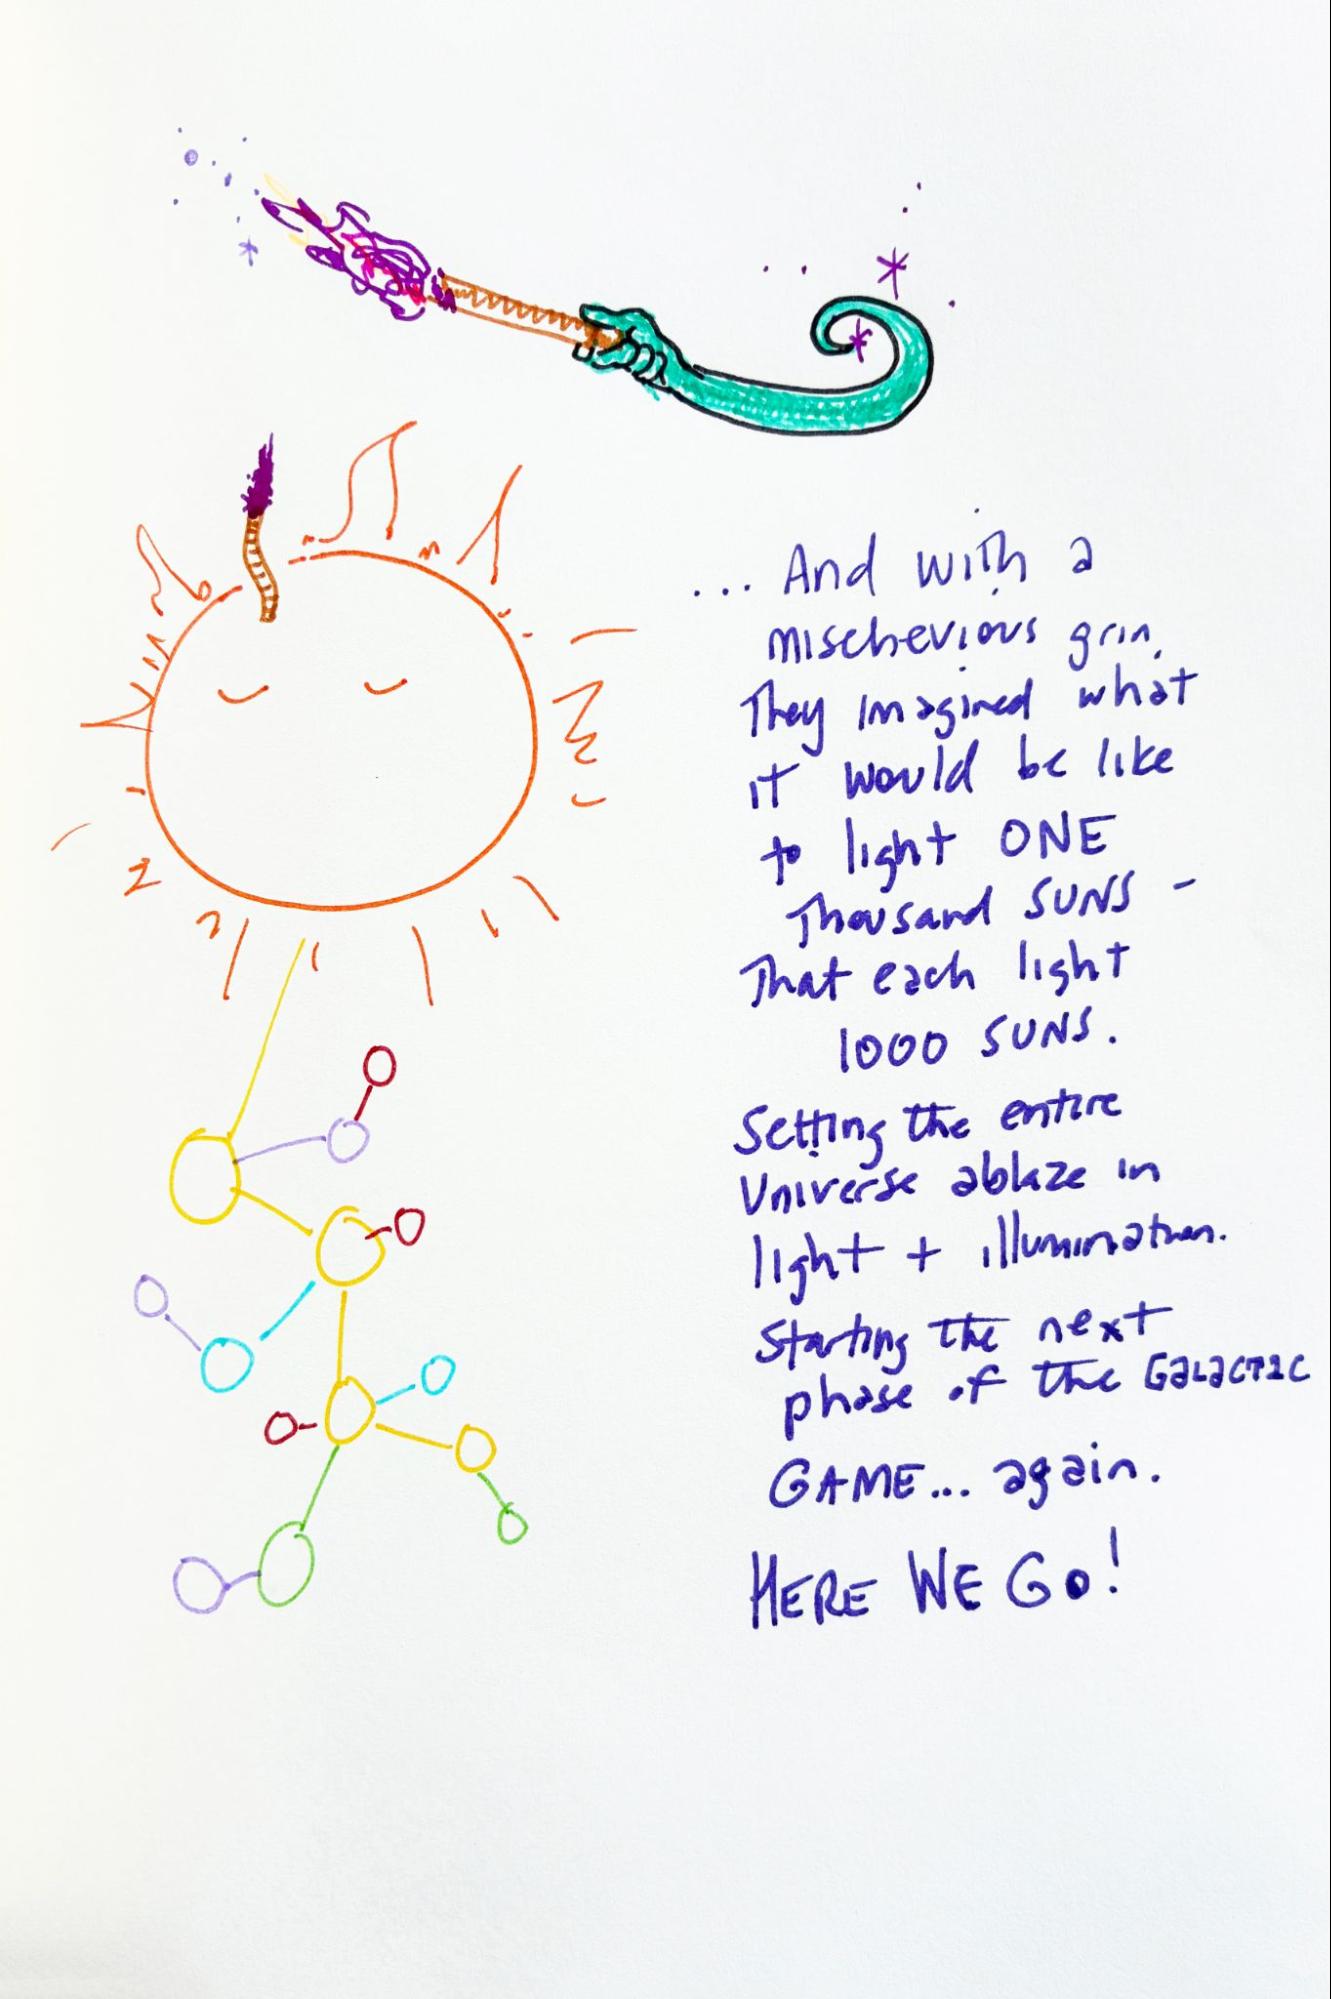 ... And with a
mischevious grin,
They imagined what
it would be like
to light ONE
Thousand SUNS -
That each light
1000 SUNS.
Setting the entire
Universe ablaze in
light + illumination.
Starting the next
phase of the GALACTIC
GAME... again.
HERE WE GO!